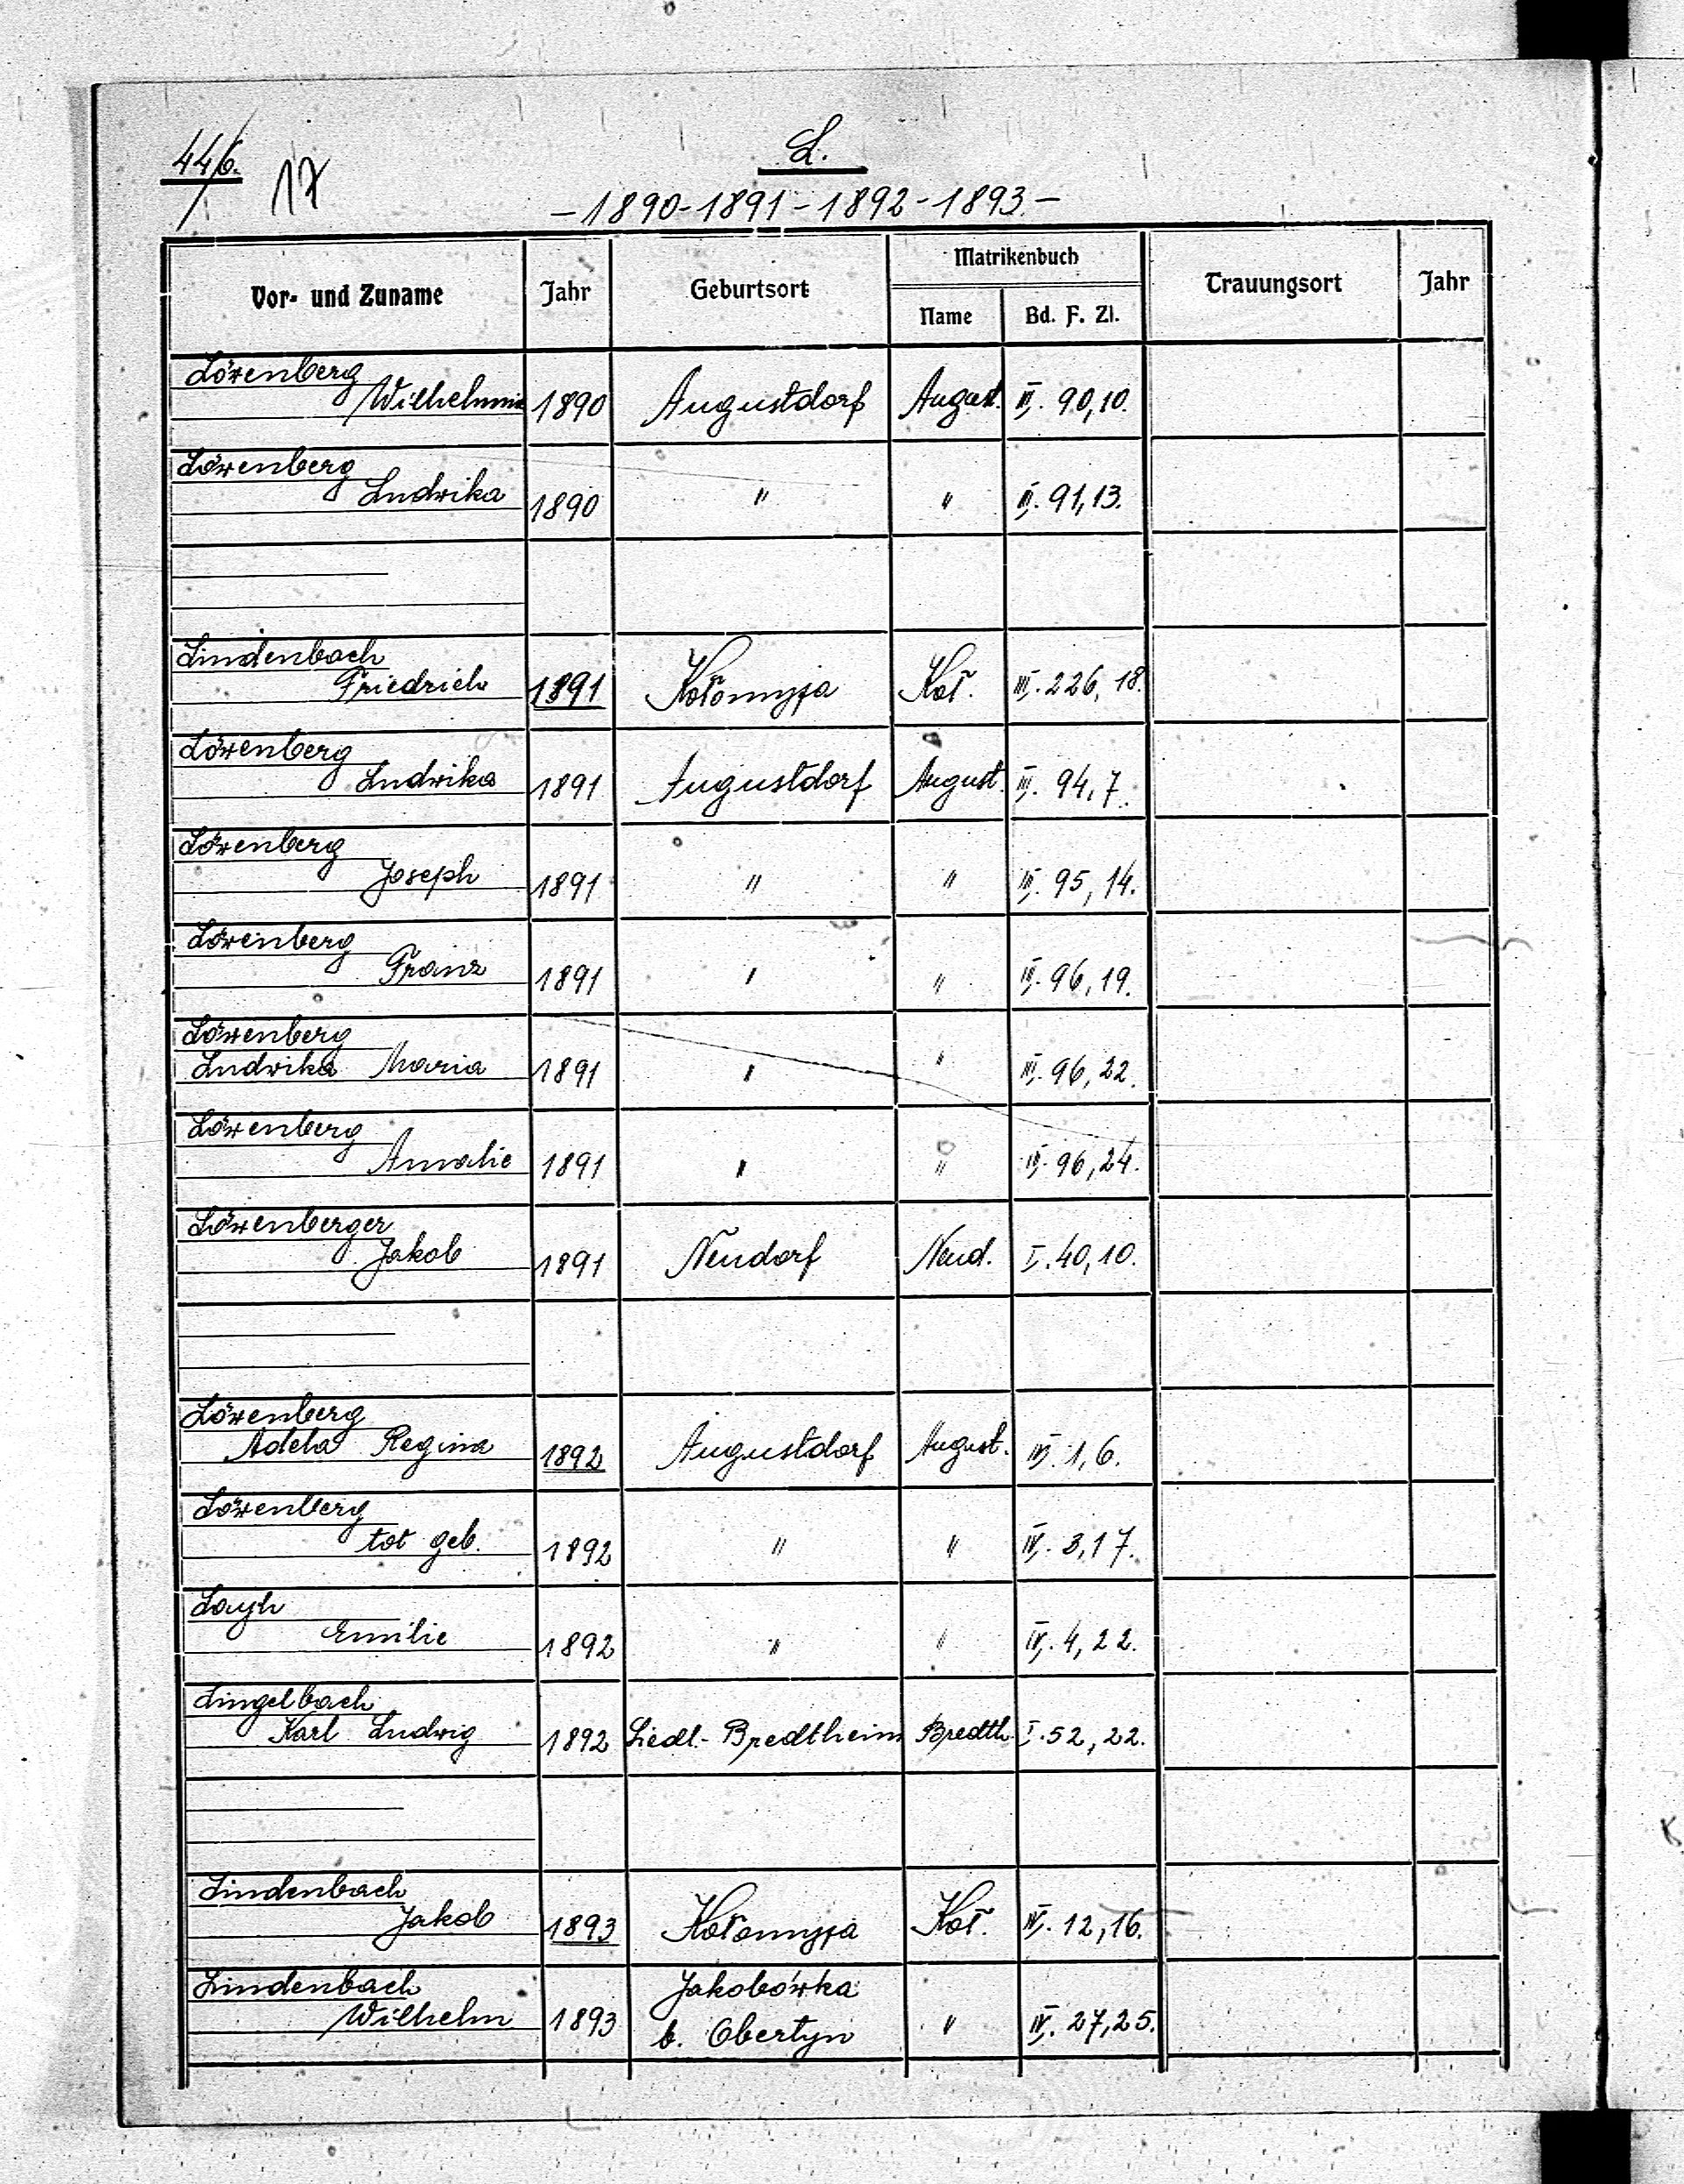 446.
17
L.
- 1890 - 1891 - 1892 - 1893. -
Vor- und Zuname Jahr Geburtsort Matrikenbuch Trauungsort Jahr
Name Bd. F. Zl.
Löwenberg
Wilhelmine 1890 Augustdorf August. III. 90,10.
Löwenberg
Ludwika 1890 " " III. 91,13.
Lindenbach
Friedrich 1891 Kołomyja Koł. III. 226, 18.
Löwenberg
Ludwika 1891 Augustdorf August. III. 94,7.
Löwenberg
Joseph 1891 " " III. 95,14.
Löwenberg
Franz 1891 " " III. 96,19.
Löwenberg
Ludwika Maria 1891 " " III. 96,22.
Löwenberg
Amalie 1891 " " III. 96,24.
Löwenberger
Jakob 1891 Neudorf Neud. I. 40,10.
Löwenberg
Adela Regina 1892 Augustdorf August. IV. 1,6.
Löwenberg
tot geb. 1892 " " IV. 3,17.
Layh
Emilie 1892 " " IV. 4,22.
Lingelbach
Karl Ludwig 1892 Siedl.- Bredtheim Bredth. I. 52,22.
Lindenbach
Jakob 1893 Kołomyja Koł. IV. 12,16.
Lindenbach
Wilhelm 1893 Jakobówka
b. Obertyn " IV. 27,25.